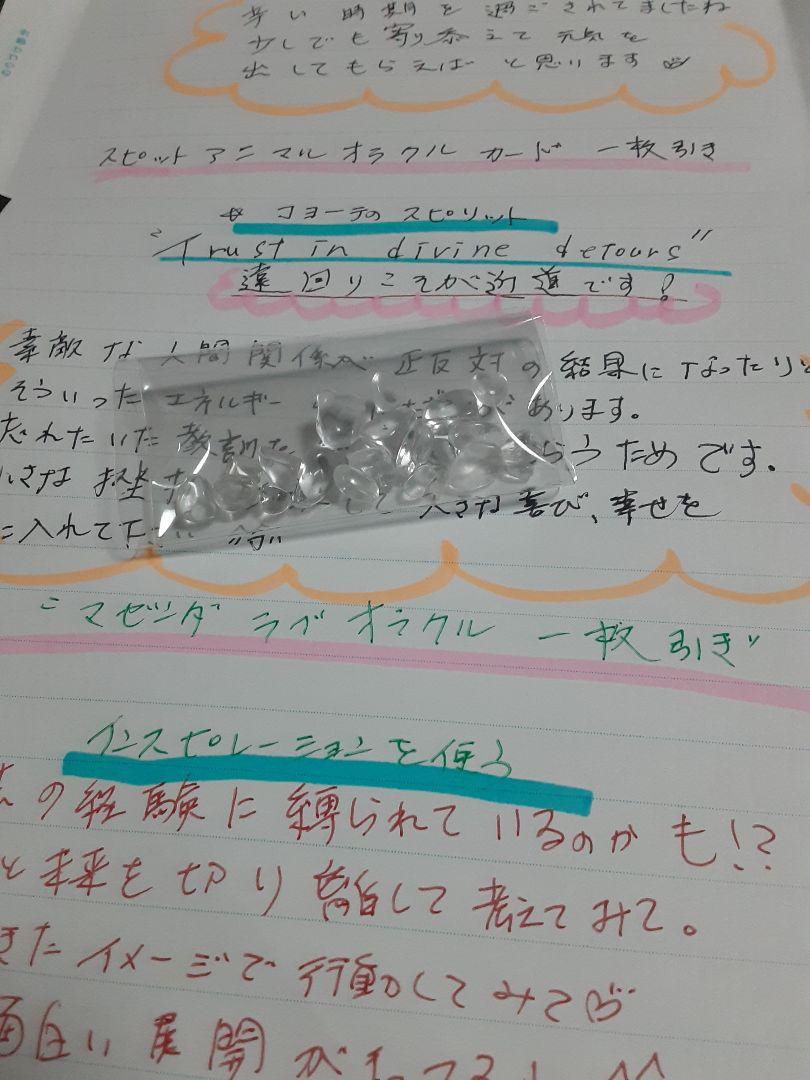 辛い時期を過ごされてましたね
少しでも寄り添えて元気を
出してもらえばと思います
スピットアニマルオラクルカード 一枚引き
コヨーテのスピリット
"Trust in divine detours"
遠回りこそが近道です!
素敵な人間関係が正反対の結果になったりと
そういったエネルギー があります。
忘れたいた教訓を らうためです。
さな挫 して 大きな喜び、幸せを
に入れて下
"マゼンダ ラブオラクル 一枚引き"
インスピレーションを使う
の経験に縛られているのかも!?
と未来を切り離して考えてみて。
きたイメージで行動してみて
面白い展開が